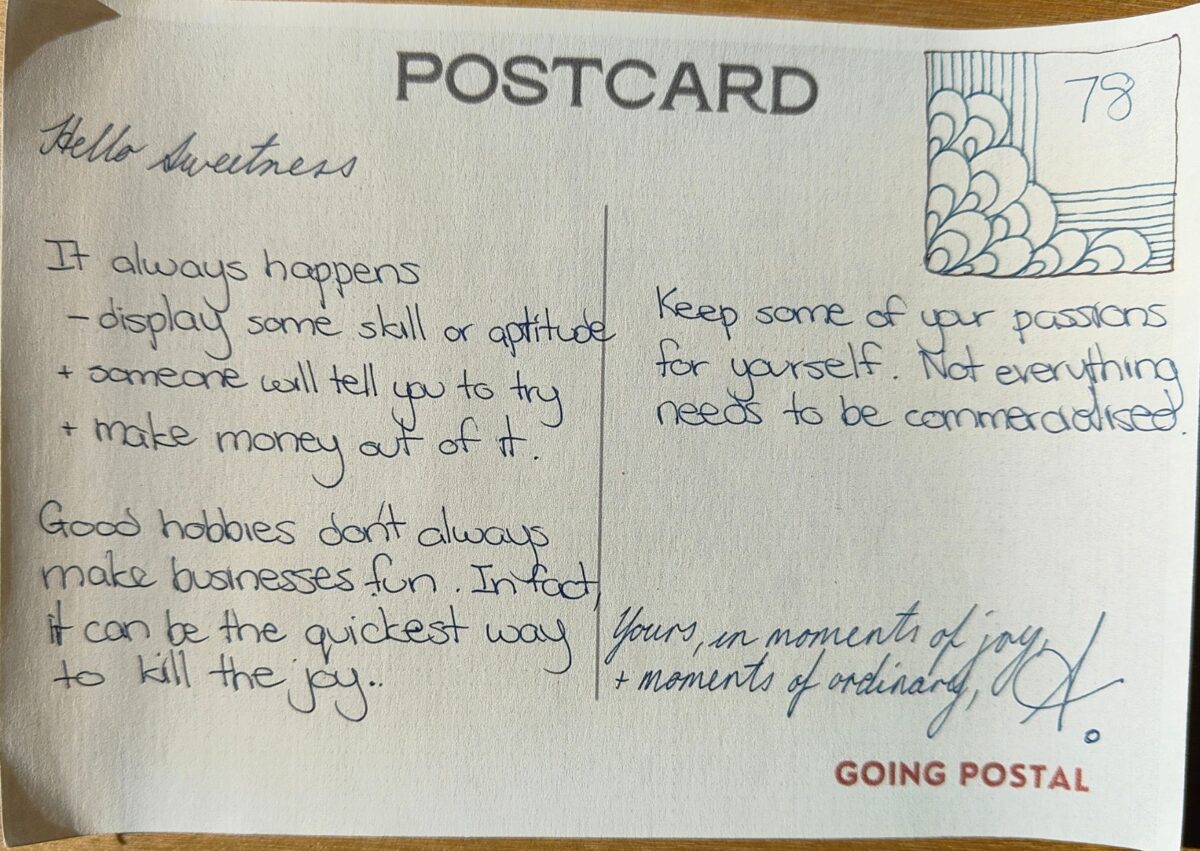 POSTCARD
78
Hello Sweetness
It always happens
- display some skill or aptitude
+ someone will tell you to try
+ make money out of it.
Good hobbies don't always
make businesses fun. In fact,
it can be the quickest way
to kill the joy..
Keep some of your passions
for yourself. Not everything
needs to be commercialised.
Yours, in moments of joy,
+ moments of ordinary,
A.
GOING POSTAL